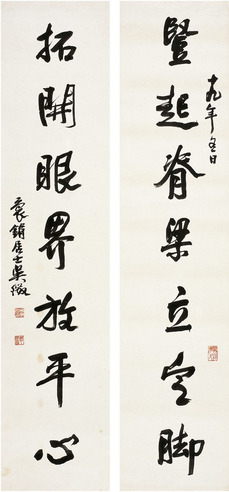 豎起脊梁立定脚
十九年冬日
拓開眼界放平心
褱鋗居士吳徵